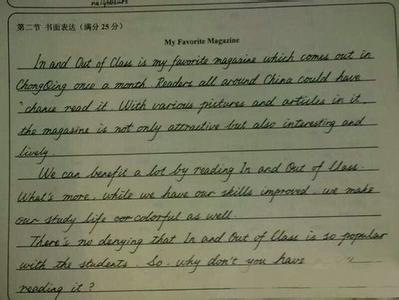 neighbours
第二节 书面表达（满分 25 分）
My Favorite Magazine
In and Out of Class is my favorite magazine which comes out in
ChongQing once a month. Readers all around China could have
chance read it. With various pictures and articles in it,
the magazine is not only attractive but also interesting and
lively.
We can benefit a lot by reading In and Out of Class.
What's more, while we have our skills improved, we make
our study life colorful as well.
There's no denying that In and Out of Class is so popular
with the students. So, why don't you have
reading it?